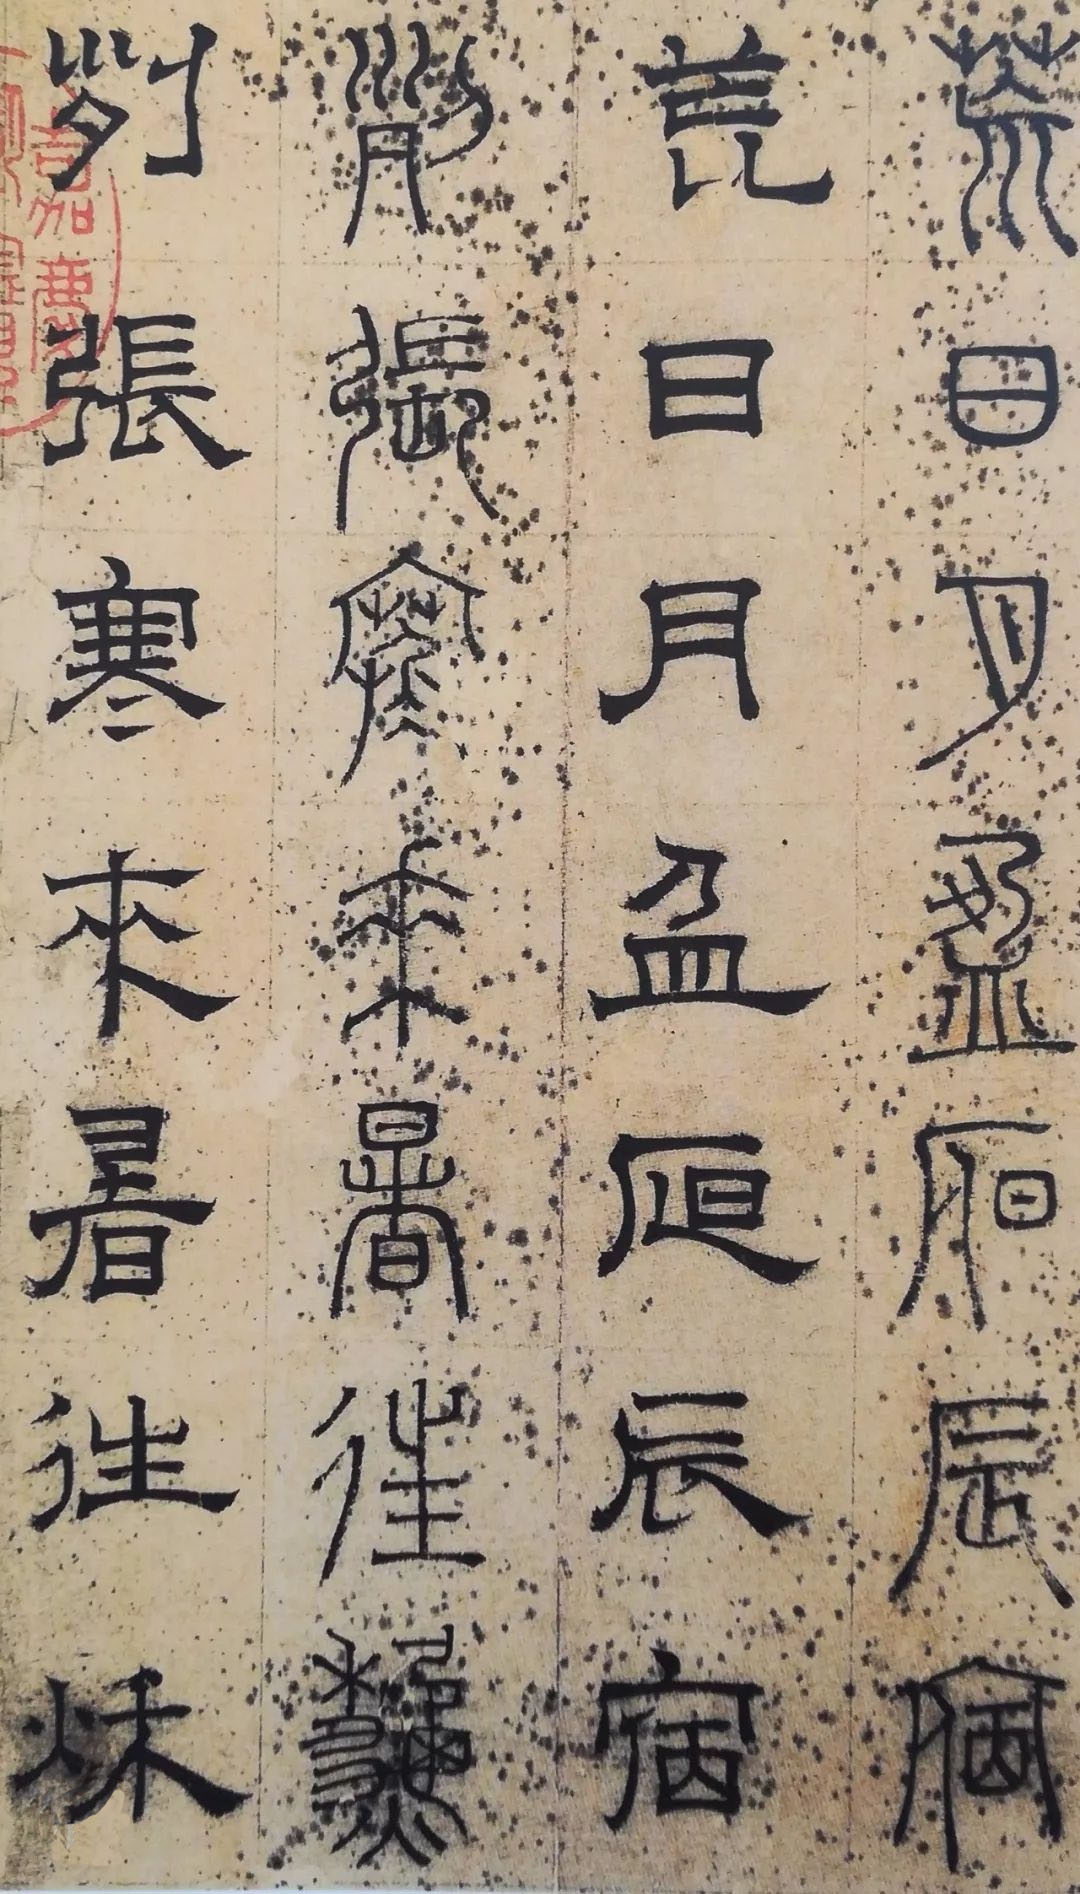 荒日月盈昃辰宿
荒日月盈昃辰宿
列張寒來暑往秋
列張寒來暑往秌
嘉慶